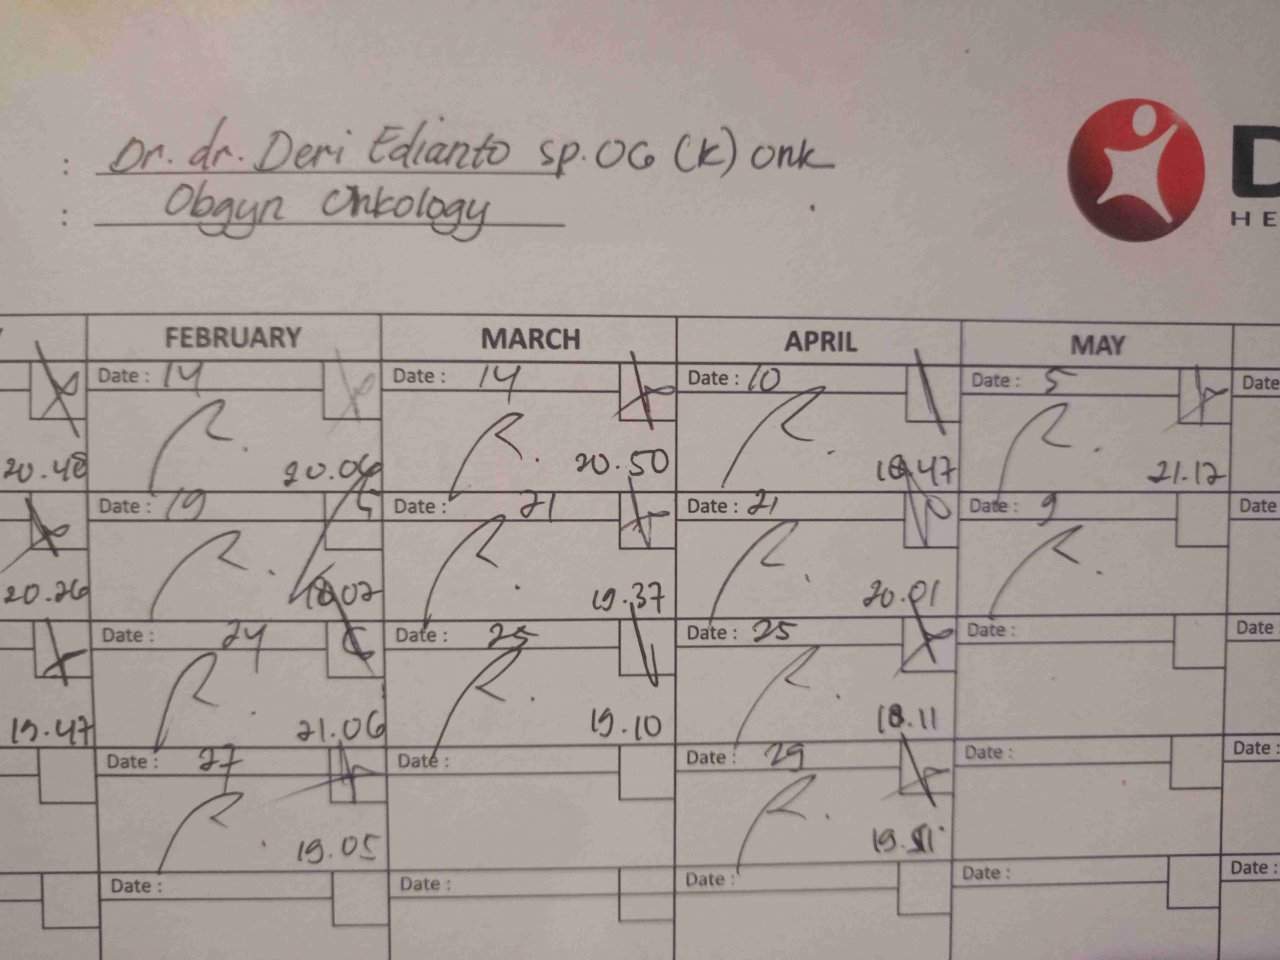 : Dr. dr. Deri Edianto sp.OG (K) onk
: Obgyn Onkology
D
HE
FEBRUARY MARCH APRIL MAY
Date : 14 Date : 14 Date : 10 Date : 5 Date
20.48 20.06 20.50 18.47 21.12
Date : 19 Date : 21 Date : 21 Date : 9 Date
20.26 18.02 19.37 20.01
Date : 24 Date : 25 Date : 25 Date : Date :
19.47 21.06 19.10 18.11
Date : 27 Date : Date : 29 Date : Date :
19.05 19.51
Date : Date : Date : Date : Date :